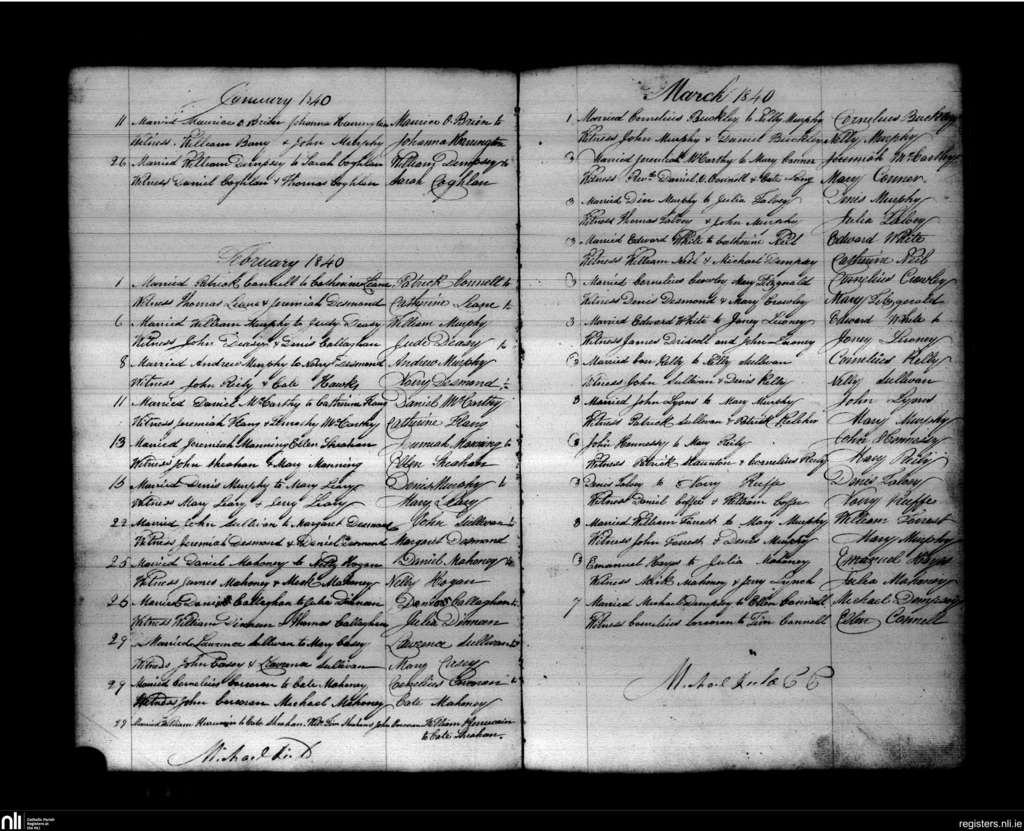 January 1840
11 Married Maurice O Brien Johanna Harrington Maurice O. Brien to
Witness. William Barry & John Murphy Johanna Harrington
26 Married William Dempsey to Sarah Coghlan William Dempsey to
Witness Daniel Coghlan & Thomas Coghlan Sarah Coghlan
February 1840
1 Married Patrick Connell to Catherine Leane Patrick Connell to
Witness Thomas Leane & Jeremiah Desmond Catherine Leane
6 Married William Murphy to Judy Deasy William Murphy
Witness John Deasy & Denis Callaghan Jude Deasy
8 Married Andrew Murphy to Nory Desmond Andrew Murphy
Witness John Riely & Cate Hawks Nory Desmond
11 Married Daniel McCarthy to Catherine Daniel McCarthy
Witness Jeremiah & Timothy McCarthy Catherine
13 Married Jeremiah Manning Ellen Sheahan Jeremiah Manning to
Witness John Sheahan & Mary Manning Ellen Sheahan
15 Married Denis Murphy to Mary Leary Denis Murphy to
Witness Mary Leary & Jerry Leary Mary Leary
22 Married John Sullivan to Margaret Desmond John Sullivan
Witness Jeremiah Desmond & Daniel Desmond Margaret Desmond
25 Married Daniel Mahoney to Nelly Hogan Daniel Mahoney
Witness James Mahoney & Mahoney Nelly Hogan
25 Married Callaghan to Julia Callaghan
Witness William & Thomas Callaghan Julia
29 Married Laurence Sullivan to Mary Casey Laurence Sullivan
Witness John Casey & Laurence Sullivan Mary Casey
29 Married Cornelius Corcoran to Cate Mahoney Cornelius Corcoran
Witness John Corcoran Michael Mahoney Cate Mahoney
29 Married William to Cate Sheahan. John William
to Cate Sheahan.
Michael
March 1840
1 Married Cornelius Buckley to Nelly Murphy Cornelius Buckley
Witness John Murphy & Daniel Buckley Nelly Murphy
3 Married Jeremiah McCarthy to Mary Connor Jeremiah McCarthy
Witness Revd. Daniel O Connell & Cate Mary Connor
3 Married Murphy to Julia Lalvey Murphy
Witness Thomas Lalvey & John Murphy Julia Lalvey
3 Married Edward White to Catherine Neil Edward White
Witness William Neil & Michael Dempsey Catherine Neil
3 Married Cornelius Crowley Mary Fitzgerald Cornelius Crowley
Witness Denis Desmond & Mary Crowley Mary Fitzgerald
3 Married Edward White to Edward White to
Witness James Driscoll and John
3 Married Con Kelly to Nelly Sullivan Cornelius Kelly
Witness John Sullivan & Denis Kelly Nelly Sullivan
3 Married John Lyons to Mary Murphy John Lyons
Witness Patrick Sullivan & Patrick Mary Murphy
3 John Hennessy to Mary Riely John Hennessy
Witness Patrick Staunton & Cornelius Mary Riely
3 Denis Lalvey to Ruffe Denis Lalvey
Witness Daniel & William Ruffe
3 Married William Forrest to Mary Murphy William Forrest
Witness John Forrest & Denis Murphy Mary Murphy
3 Emanuel Hayes to Julia Mahoney Emanuel Hayes
Witness Mahoney & Jerry Lynch Julia Mahoney
7 Married Michael Dempsey to Ellen Connell Michael Dempsey
Witness Cornelius Corcoran to Tim Connell Ellen Connell
Michael
nli Catholic Parish
Registers at
the NLI
registers.nli.ie